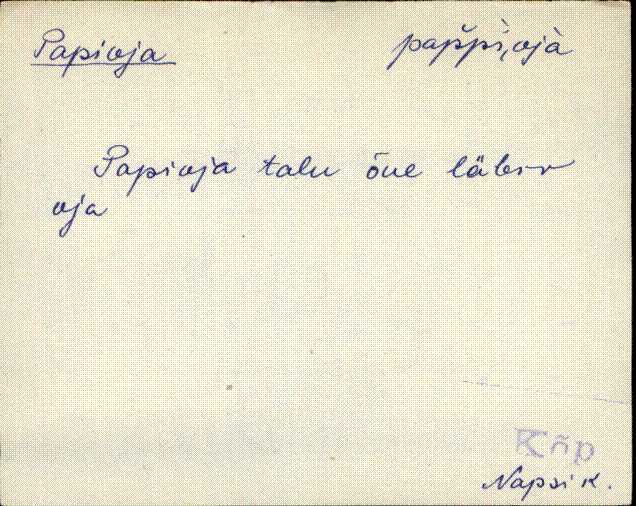 Papioja pappi,oja
Papioja talu õue läbiv
oja
Kõp
Napsi k.